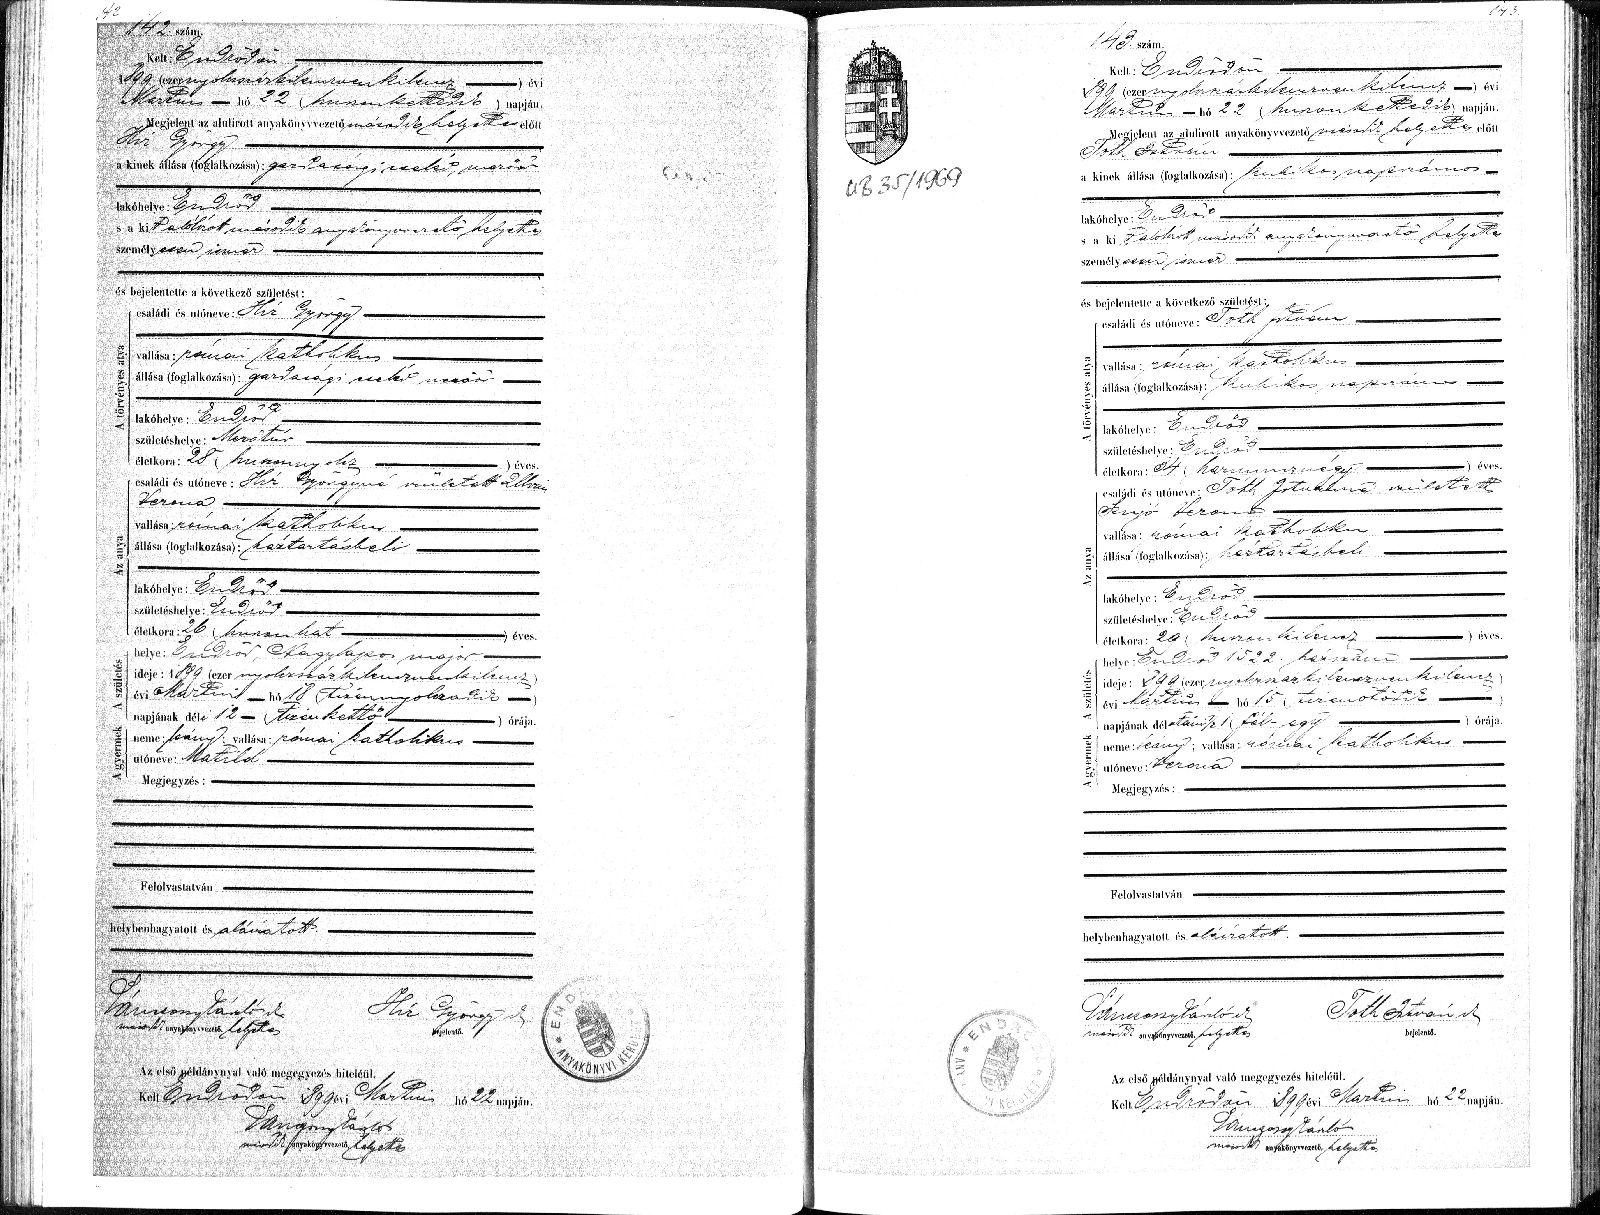 142
142. szám.
Kelt: Endrődön
1899 (ezer nyolczszázkilenczvenkilencz) évi
Martius hó 22 (huszonkettedik) napján.
Megjelent az alulirott anyakönyvvezető második helyettes előtt
Hir György
a kinek állása (foglalkozása): gazdasági cseléd,
lakóhelye: Endrőd
s a ki alólirott második anyakönyvvezető helyettes
személyesen ismer
és bejelentette a következő születést:
A törvényes atya
családi és utóneve: Hir György
vallása: római katholikus
állása (foglalkozása): gazdasági cseléd
lakóhelye: Endrőd
születéshelye: Mezőtúr
életkora: 28 (huszonnyolcz) éves.
Az anya
családi és utóneve: Hir Györgyné született
Verona
vallása: római katholikus
állása (foglalkozása): háztartásbeli
lakóhelye: Endrőd
születéshelye: Endrőd
életkora: 26 (huszonhat) éves.
A születés
helye: Endrőd, Nagylapos major
ideje: 1899 (ezer nyolczszázkilenczvenkilencz)
évi Martius hó 18 (tizennyolczadik)
napjának déle 12 (tizenkettő) órája.
A gyermek
neme: leány; vallása: római katholikus
utóneve: Matild
Megjegyzés:
Felolvastatván
helybenhagyatott és aláiratott.
Hir György
második anyakönyvvezető helyettes
bejelentő.
ENDRŐD
ANYAKÖNYVI KERÜLET
Az első példánynyal való megegyezés hiteléül.
Kelt Endrődön 1899 évi Martius hó 22 napján.
második anyakönyvvezető helyettes
UB 35/1969
143
143. szám.
Kelt: Endrődön
1899 (ezer nyolczszázkilenczvenkilencz) évi
Martius hó 22 (huszonkettedik) napján.
Megjelent az alulirott anyakönyvvezető második helyettes előtt
Toth István
a kinek állása (foglalkozása): kubikos, napszámos
lakóhelye: Endrőd
s a ki alólirott második anyakönyvvezető helyettes
személyesen ismer
és bejelentette a következő születést:
A törvényes atya
családi és utóneve: Toth István
vallása: római katholikus
állása (foglalkozása): kubikos, napszámos
lakóhelye: Endrőd
születéshelye: Endrőd
életkora: 34 (harmincznégy) éves.
Az anya
családi és utóneve: Toth Istvánné született
Verona
vallása: római katholikus
állása (foglalkozása): háztartásbeli
lakóhelye: Endrőd
születéshelye: Endrőd
életkora: 29 (huszonkilencz) éves.
A születés
helye: Endrőd 1522. házszám
ideje: 1899 (ezer nyolczszázkilenczvenkilencz)
évi Martius hó 15 (tizenötödik)
napjának délutáni ½ 1 (fél egy) órája.
A gyermek
neme: leány; vallása: római katholikus
utóneve: Verona
Megjegyzés:
Felolvastatván
helybenhagyatott és aláiratott.
Toth István
második anyakönyvvezető helyettes
bejelentő.
Az első példánynyal való megegyezés hiteléül.
Kelt Endrődön 1899 évi Martius hó 22 napján.
második anyakönyvvezető helyettes